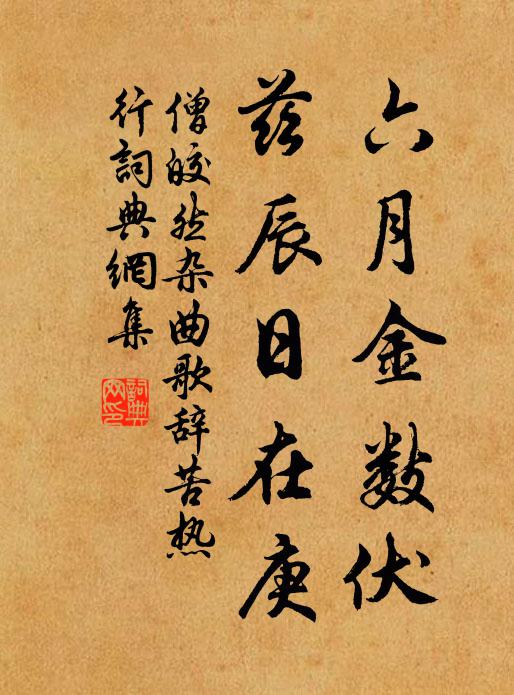 六月金数伏
兹辰日在庚
僧皎然杂曲歌辞苦热
行詞典網集
詞典网印